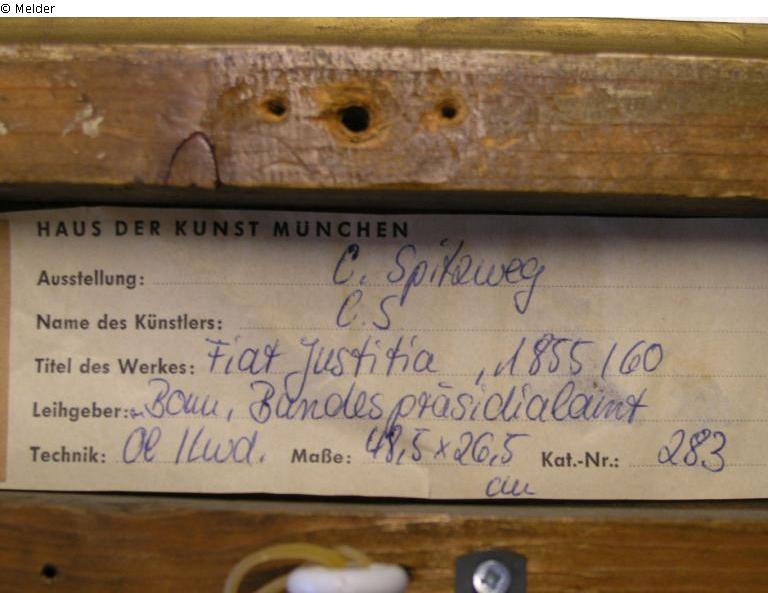 © Melder
HAUS DER KUNST MÜNCHEN
Ausstellung: C. Spitzweg
Name des Künstlers: C. S
Titel des Werkes: Fiat Justitia, 1855/60
Leihgeber: Bonn, Bundespräsidialamt
Technik: Öl / Lwd. Maße: 48,5 x 26,5 Kat.-Nr.: 283
cm